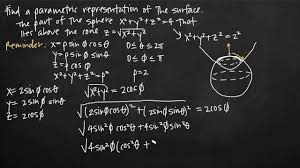 find a parametric representation of the surface.
the part of the sphere x²+y²+z²=4 that
lies above the cone z=√x²+y²
Reminder:
x=ρsinφcosθ 0≤θ≤2π
y=ρsinφsinθ 0≤φ≤π
z=ρcosφ
x²+y²+z²=ρ²
x²+y²+z²=2²
x=2sinφcosθ
y=2sinφsinθ
z=2cosφ
√(2sinφcosθ)²+(2sinφsinθ)² = 2cosφ
√4sin²φcos²θ+4sin²φsin²θ
√4sin²φ(cos²θ+